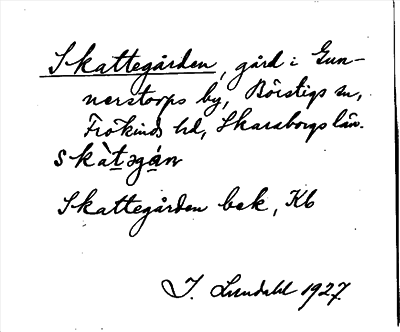 Skattegården, gård i Gun-
nerstorps by, Börstigs sn,
Frökinds hd, Skaraborgs län.
skàt̲əgá̲n
Skattegården bek, Kb
I. Lundahl 1927